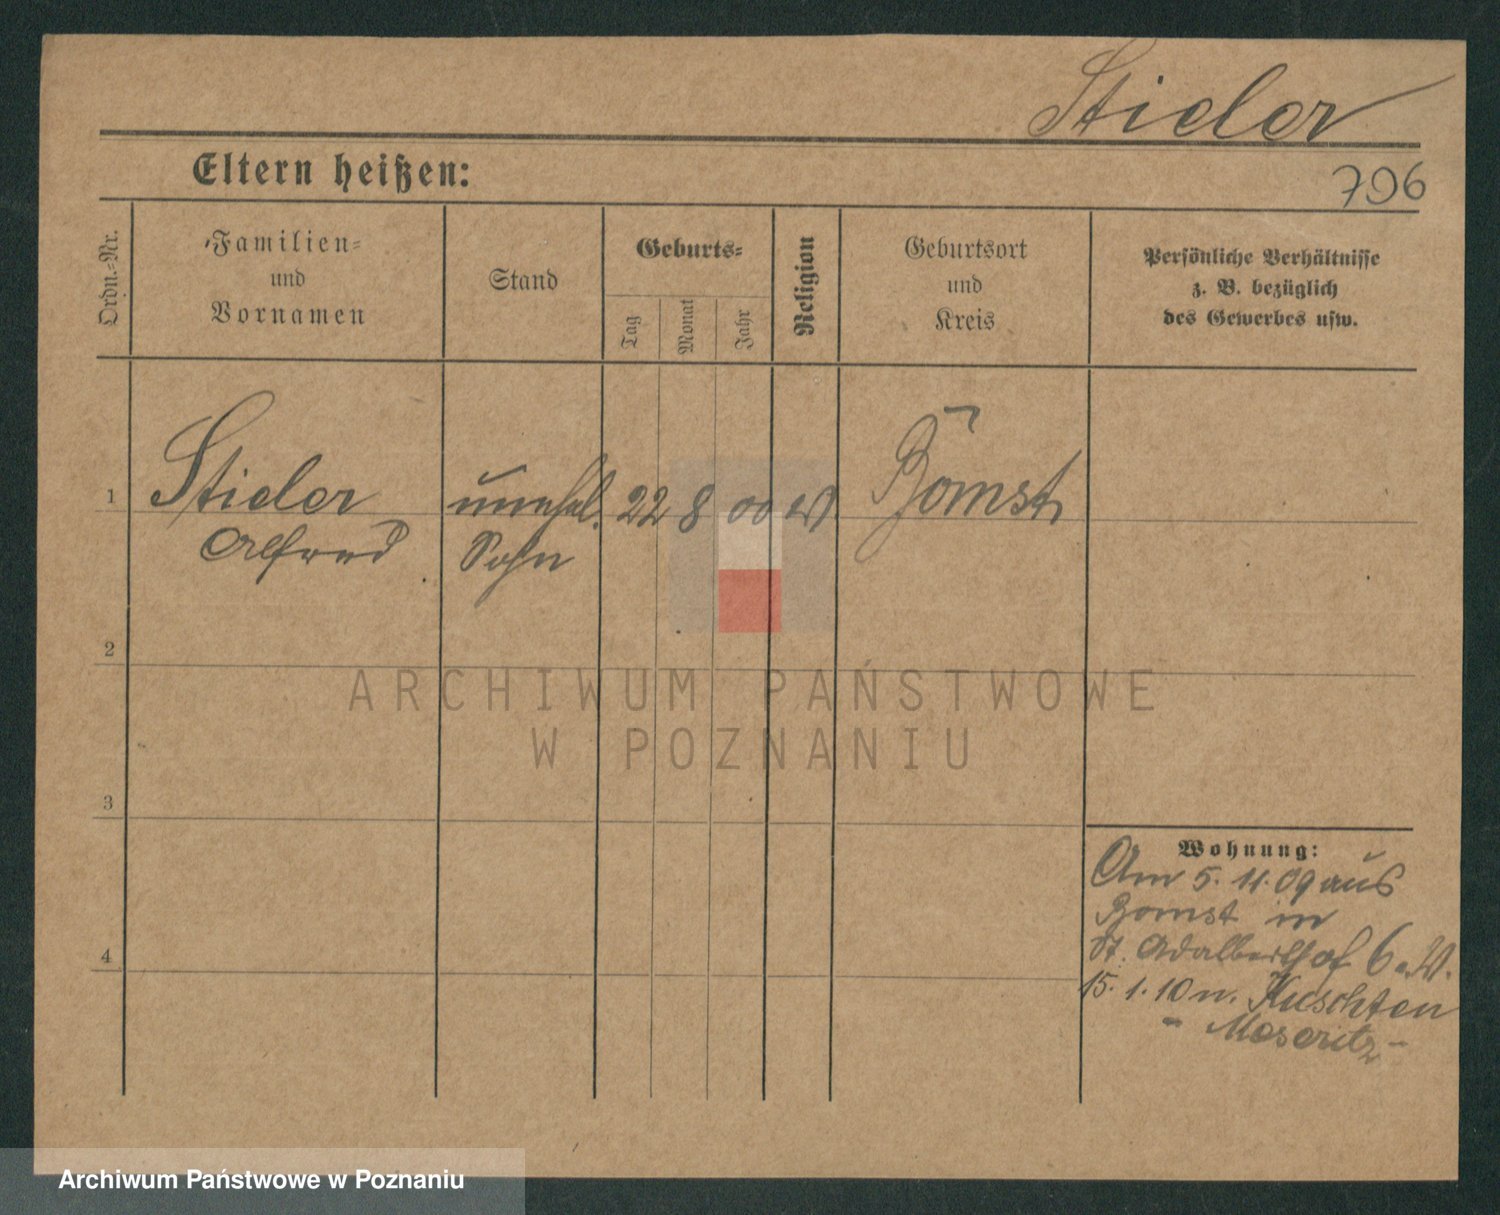 Stieler
796
Eltern heißen:
Ordn.-Nr.
Familien-
und
Vornamen
Stand
Geburts-
Tag
Monat
Jahr
Religion
Geburtsort
und
Kreis
Persönliche Verhältnisse
z. B. bezüglich
des Gewerbes usw.
1 Stieler unehel. 22 8 00 Bomst
Alfred Sohn
2
3
4
Wohnung:
Am 5.11.09 aus
Bomst in
St. Adalberthof 6
15.1.10 n. Kuschten
- Meseritz -
ARCHIWUM PAŃSTWOWE
W POZNANIU
Archiwum Państwowe w Poznaniu